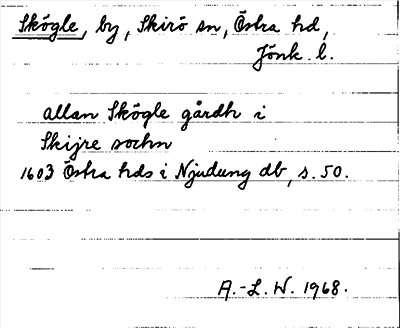 Skögle, by, Skirö sn, Östra hd,
Jönk. l.
allan Skögle gårdh i
Skijre sochn
1603 Östra hds i Njudung db, s. 50.
A.-L. W. 1968.